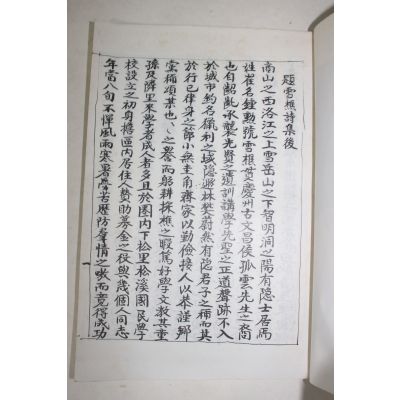 題雪樵詩集後
南山之西洛江之上雪岳山之下智明洞之陽有隱士居焉
姓崔名鍾勳號雪樵貫慶州古文昌侯孤雲先生之裔
也自齠齓承襲先賢之遺訓講學先聖之正道聲跡不入
於城市約名儀利之域隱游林樊蔚然有隱君子之稱而其
於行己律身之節小無圭角齊家以勤儉接人以恭謹鄉
黨稱頌某也某也之譽而躬耕採樵之暇篤好學文教其童
孫及隣里來學者成人者多且於園內下松里松溪國民學
校設立之初身擔區內居住人贊助募金之役與幾個人同志
年當八旬不憚風雨寒暑學苦歷防羣情之
而竟得成功